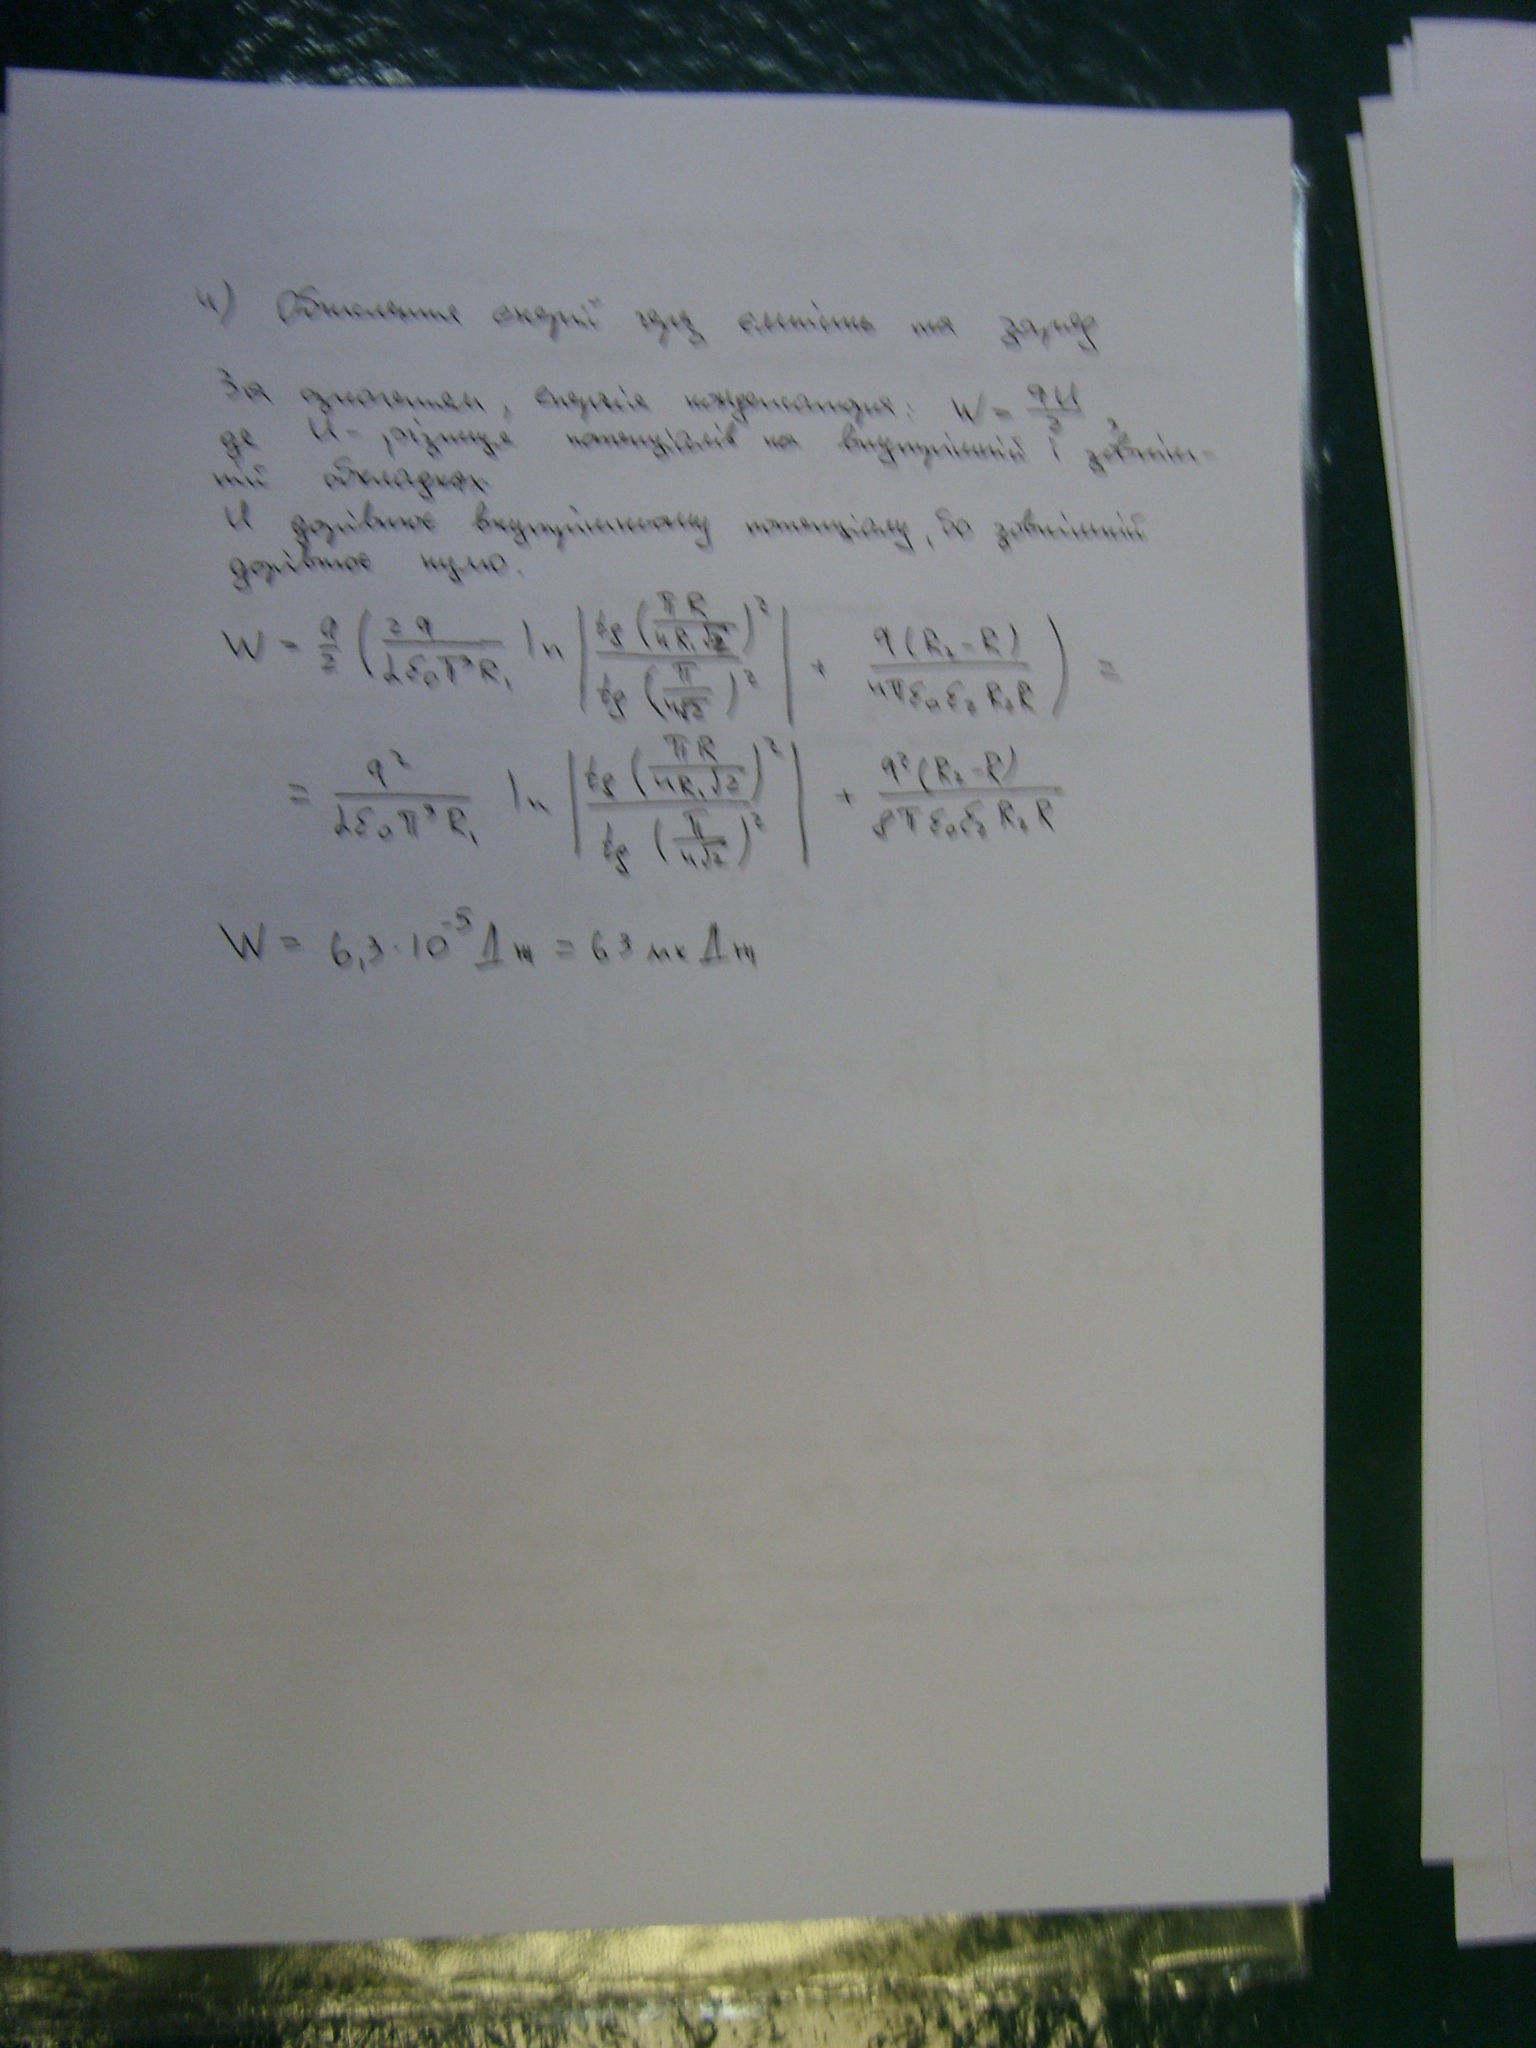 4) Обчислення енергії через ємність та заряд
За означенням, енергія конденсатора: W = qU/2,
де U - різниця потенціалів на внутрішній і зовніш-
ній обкладках
U дорівнює внутрішньому потенціалу, бо зовнішній
дорівнює нулю.
W = q/2 ( 2q/(αε₀π²R₁) ln | tg(πR/(4R₁√2))² / tg(π/(4√2))² | + q(R₂-R)/(4πε₀ε₂R₂R) ) =
= q²/(αε₀π²R₁) ln | tg(πR/(4R₁√2))² / tg(π/(4√2))² | + q²(R₂-R)/(8πε₀ε₂R₂R)
W = 6,3·10⁻⁵ Дж = 63 мкДж